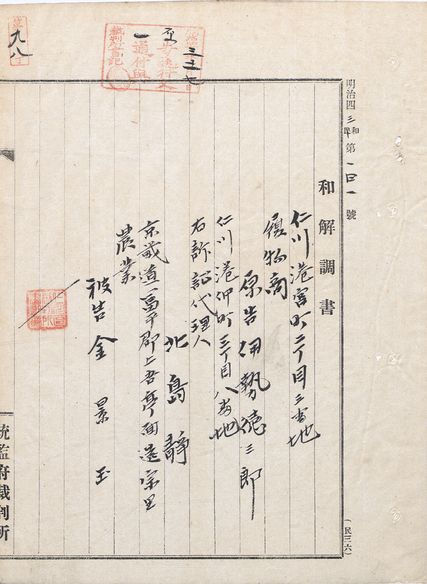 明治四三年和民第一四一號
和解調書
仁川港富町二丁目三番地
履物商
原告 伊勢徳三郎
仁川港仲町三丁目八番地
右訴訟代理人
北島靜
京畿道富平郡上吾亭面遠宗里
農業
被告 金景玉
九八
統監府裁判所
(民三六)